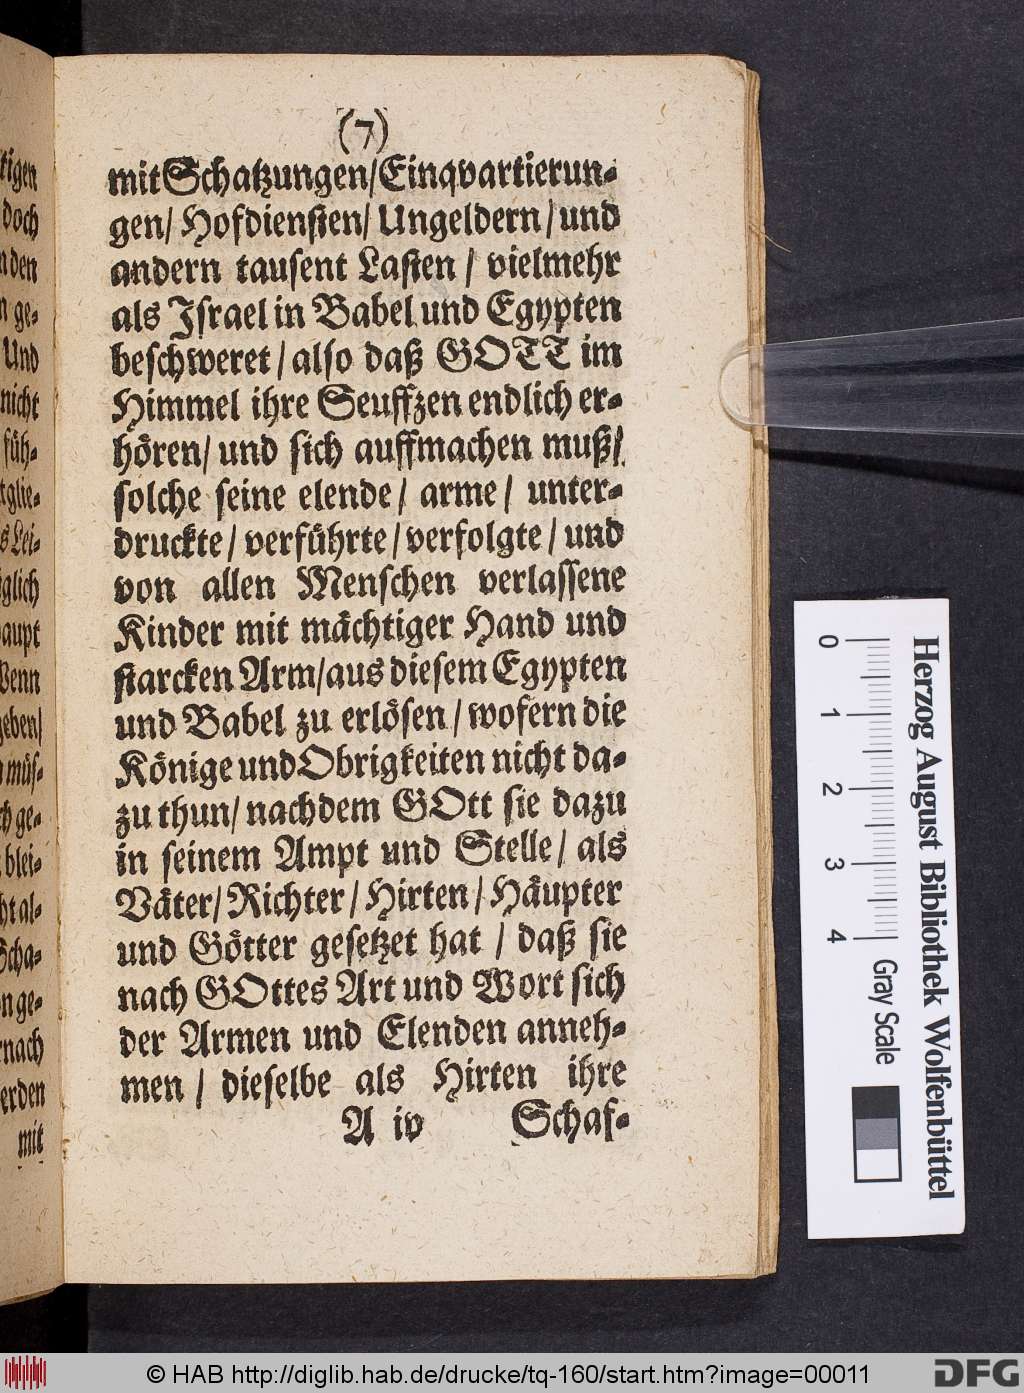 (7)
mit Schatzungen/ Einqvartierun-
gen/ Hofdiensten/ Ungeldern/ und
andern tausent Lasten / vielmehr
als Israel in Babel und Egypten
beschweret / also daß GOTT im
Himmel ihre Seuffzen endlich er-
hören/ und sich auffmachen muß/
solche seine elende/ arme/ unter-
druckte/ verführte/ verfolgte/ und
von allen Menschen verlassene
Kinder mit mächtiger Hand und
starcken Arm/ aus diesem Egypten
und Babel zu erlösen/ wofern die
Könige und Obrigkeiten nicht da-
zu thun/ nachdem GOtt sie dazu
in seinem Ampt und Stelle/ als
Väter/ Richter/ Hirten/ Häupter
und Götter gesetzet hat / daß sie
nach GOttes Art und Wort sich
der Armen und Elenden anneh-
men / dieselbe als Hirten ihre
A iv Schaf-
doch
den
ge-
Und
nicht
füh-
glie-
Lei-
glich
aupt
Wenn
geben/
müs-
ge-
blei-
al-
Scha-
ge-
nach
erden
mit
0 1 2 3 4
Gray Scale
Herzog August Bibliothek Wolfenbüttel
© HAB http://diglib.hab.de/drucke/tq-160/start.htm?image=00011
DFG